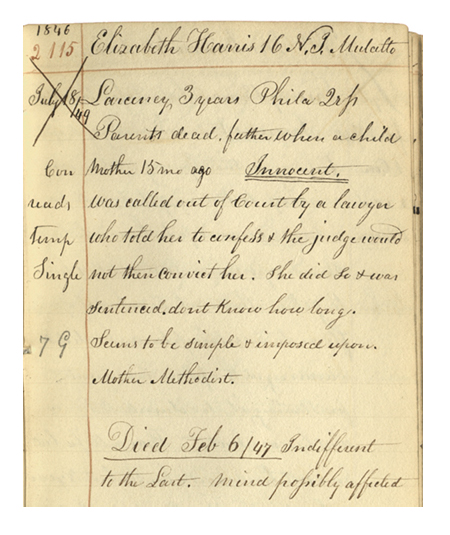 1846
2115 Elizabeth Harris 16 N.J. Mulatto
July 18/49 Larceney 3 years Phila 2rps
Parents dead. father when a child
Con Mother 15 mo ago Innocent.
reads was called out of Court by a lawyer
Temp who told her to confess & the judge would
Single not then convict her. She did so & was
sentenced. dont know how long.
7 G Seems to be simple & imposed upon.
Mother Methodist.
Died Feb 6/47 Indifferent
to the Last. Mind possibly affected